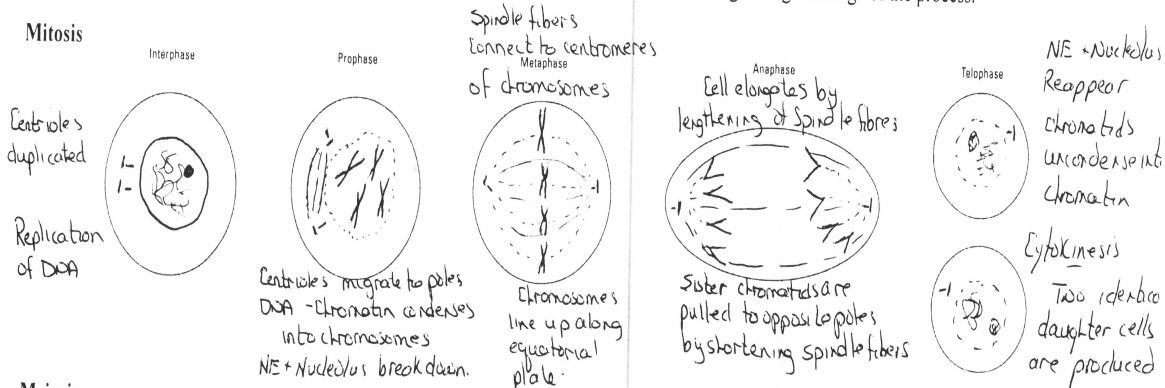 Mitosis
Interphase
Centrioles
duplicated
Replication
of DNA
Prophase
Centrioles migrate to poles
DNA - Chromatin condenses
into chromosomes
NE + Nucleolus break down.
Spindle fibers
Connect to centromeres
Metaphase
of chromosomes
Chromosomes
line up along
equatorial
plate.
Anaphase
Cell elongates by
lengthening of spindle fibres
Sister chromatids are
pulled to opposite poles
by shortening spindle fibers
Telophase
NE + Nucleolus
Reappear
Chromatids
uncondense int
Chromatin
Cytokinesis
Two identica
daughter cells
are produced